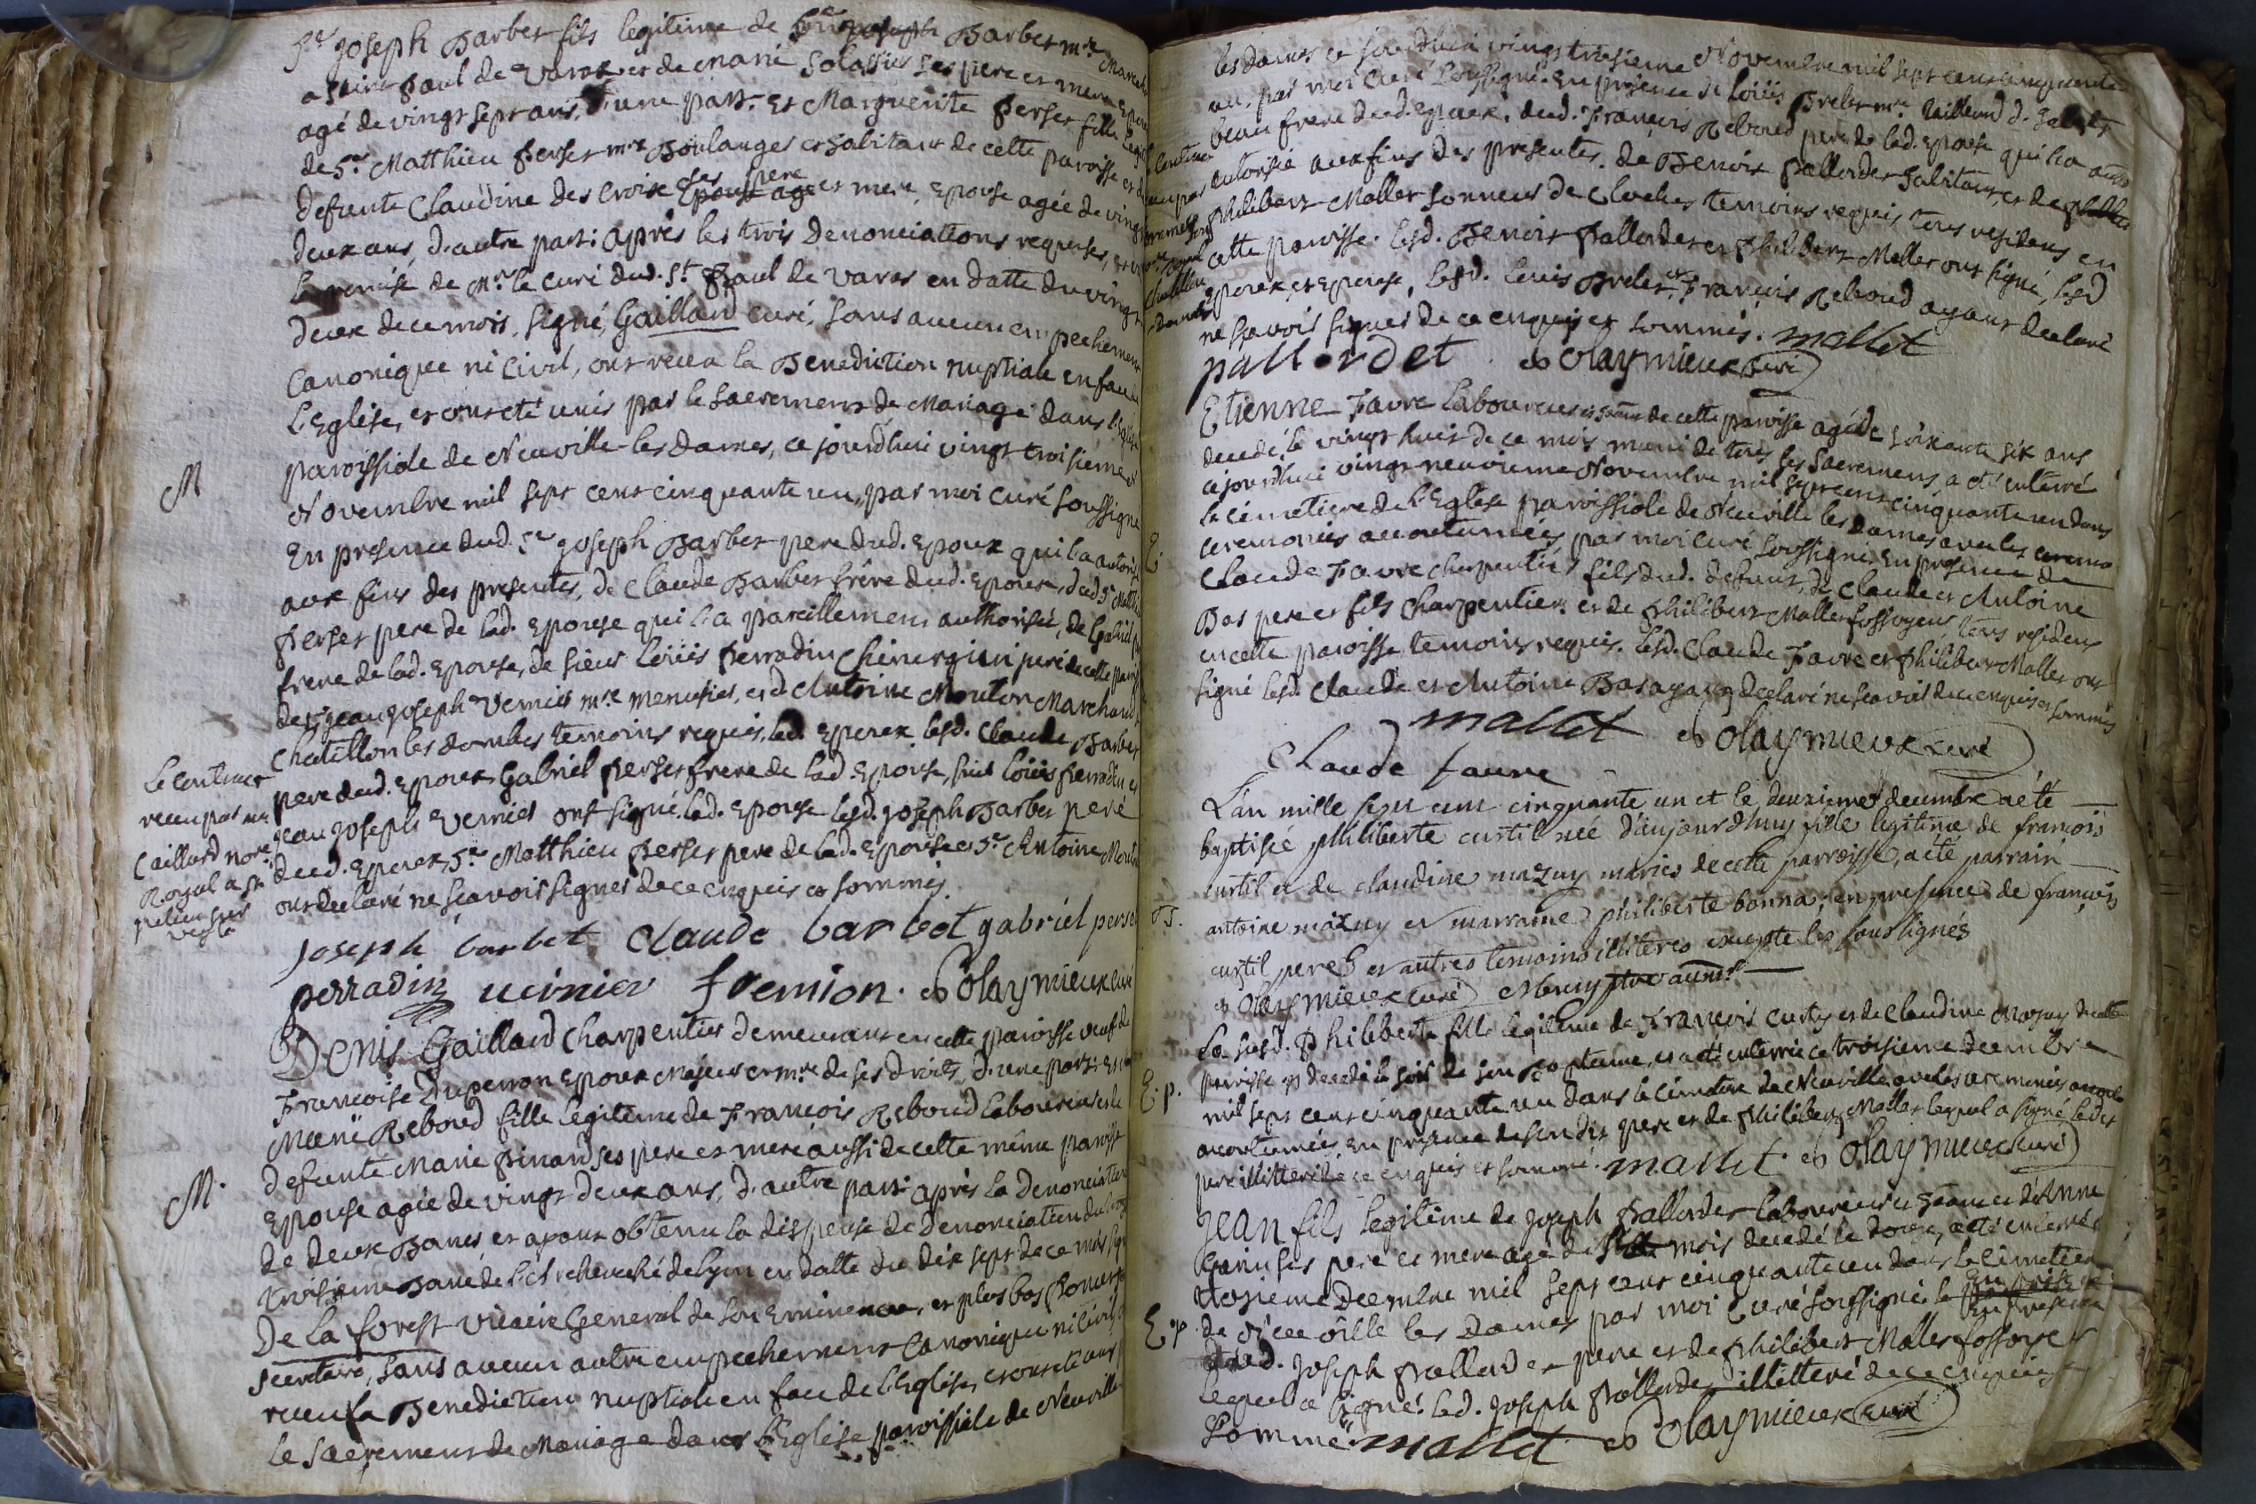 Sr Joseph Barbet fils legitime de Barbet mre Marech
a Saint Paul de Varax et de Marie Solassier ses pere et mere Epoux
agé de vingt sept ans, d'une part. Et Marguerite Perset fille legit
de Sr Matthieu Perset mre Boulanger et habitant de cette paroisse et de
defunte Claudine des Croix ses pere et mere, Epouse agée de vingt
deux ans, d'autre part: après les trois denonciations requises, et
la remise de Mr le Curé dud. St Paul de Varax en datte du vingt
deux de ce mois, signé, Gaillard curé, sans aucun empechement
Canonique ni Civil, ont receu la Benediction nuptiale en face de
l'Eglise, et ont eté unis par le Sacrement de Mariage dans l'Eglise
paroissiale de Neuville-les-Dames, ce jourdhui vingt troisieme
Novembre mil sept cent cinquante un, par moi curé soussigné
En presence dud. Sr Joseph Barbet pere dud. Epoux qui l'a autorisé
aux fins des presentes, de Claude Barbet frère dud. Epoux, dud. Sr Matthieu
Perset pere de lad. Epouse qui l'a pareillement authorisée, de Gabriel
frere de lad. Epouse, de sieur Loüis Perradin Chirurgien juré de cette paroisse
de Sr Jean Joseph Vernier mre menusier, et d'Antoine Mouton Marchand
Chatillon les dombes temoins requis, led. Epoux, lesd. Claude Barbet
pere dud. Epoux, Gabriel Perset frere de lad. Epouse, Loüis Perradin et
Jean Joseph Vernier ont signé. lad. Epouse lesd. Joseph Barbet pere
dud. Epoux, Sr Matthieu Perset pere de lad. Epouse et Sr Antoine Mouton
ont declaré ne sçavoir signer de ce enquis et sommés.
M
Le contract
receu par me
Caillard nore
Royal a St
Joseph barbet Claude barbet gabriel perset
perradin vernier fremion. Olaymieux curé
Denis Gaillard Charpentier demeurant en cette paroisse veuf de
Francoise Duperron Epoux Majeur et mre de ses droits, d'une part: Et
Marie Reboud fille legitime de Francois Reboud laboureur et de
defunte Marie Pinard ses pere et mere aussi de cette même paroisse
Epouse agée de vingt deux ans, d'autre part: après la denonciation
de deux Bancs et ayant obtenu la dispense de denonciation du
troisieme Banc de l'Archeveché de Lyon en datte du dix sept de ce mois signé
De la forest Vicaire General de Son Eminence, et plus bas
Secretaire, sans aucun autre empechement Canonique ni civil,
receu la Benediction nuptiale en face de l'Eglise, et ont eté unis
le Sacrement de Mariage dans l'Eglise paroissiale de Neuville
M.
les Dames ce jourdhui vingt troisieme Novembre mil sept cent cinquante
un, par moi Curé soussigné. En presence de Loüis Brelet mre Tailleur d'habits
beau frere dud. Epoux, dud. Francois Reboud pere de lad. Epouse qui l'a
autorisée aux fins des presentes, de Benoit Pallordet habitant, et de
Philibert Mallet sonneur de Cloches temoins requis tous residens en
cette paroisse. lesd. Benoit Pallordet et Philibert Mallet ont signé, lesd
Epoux, et Epouse, lesd. Louis Brelet, et Francois Reboud ayant declaré
ne sçavoir signer de ce enquis et sommés. mallet
pallordet Olaymieux curé
Etienne Favre laboureur de cette paroisse agé de soixante six ans
decedé le vingt huit de ce mois muni de tous les Sacremens, a eté enterré
ce jourdhui vingt neuvieme Novembre mil sept cent cinquante un dans
le Cimetiere de l'Eglise paroissiale de Neuville les Dames avec les
ceremonies accoutumées par moi curé soussigné. En presence de
Claude Favre charpentier fils dud. defunt, de Claude et Antoine
Bas pere et fils charpentiers et de Philibert Mallet fossoyeur, tous residens
en cette paroisse temoins requis. lesd. Claude Favre et Philibert Mallet ont
signé lesd. Claude et Antoine Bas ayant declaré ne sçavoir de ce enquis et sommés
E.
mallet Olaymieux curé
Claude faure
L'an mille sept cent cinquante un et le deuzieme decembre a été
baptisée philiberte curtil née d'aujourdhuy fille legitime de francois
curtil et de claudine mazuy mariés de cette parroisse, a été parrain
antoine mazuy et marraine philiberte bonna; en presence de francois
curtil pere et autres temoins illiterés excepté les soussignés
B.
Olaymieux curé
La susd. Philiberte fille legitime de Francois Curty et de Claudine Mazuy de cette
paroisse decedée le soir de son Bapteme, et a eté enterrée ce troisieme decembre
mil sept cent cinquante un dans le Cimetiere de Neuville avec les ceremonies
accoutumées, En presence de son dit pere et de Philibert Mallet lequel a signé, le dit
pere illitteré de ce enquis et sommé. mallet Olaymieux curé
E. p.
Jean fils legitime de Joseph Pallordet laboureur et d'Anne
ses pere et mere agé de mois decedé le douze, a eté enterré
Decembre mil sept cent cinquante un dans le Cimetiere
de Neuville les Dames par moi Curé soussigné. En presence
dud. Joseph Pallordet pere et de Philibert Mallet fossoyeur
lequel a signé. led. Joseph Pallordet illitteré de ce enquis et
Sommé. mallet Olaymieux curé
E. p.